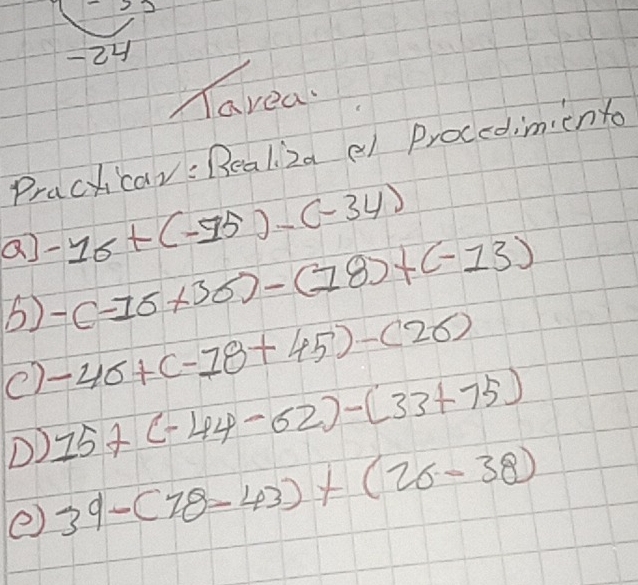 -24
Tarea.
Practicar: Realiza el Procedimiento
a) -16 + (-15) - (-34)
b) -(-16 + 36) - (18) + (-13)
c) -46 + (-18 + 45) - (26)
D) 15 + (-44 - 62) - (33 + 15)
e) 39 - (18 - 43) + (26 - 38)